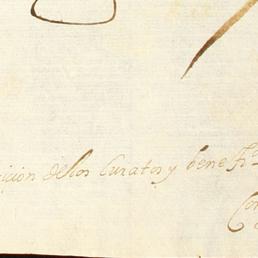 icion delos Curatos y benefi.os
Con